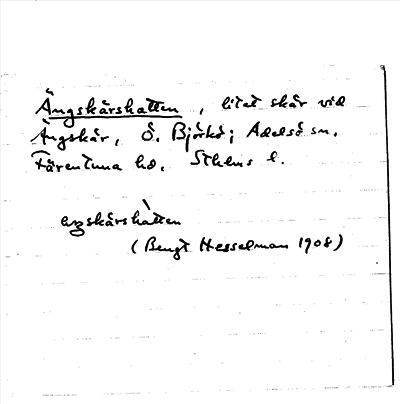 Ängskärshatten, litet skär vid
Ängskär, Ö. Björkö; Adelsö sn.
Färentuna hd. Sthlms l.
ængskärshàtten
(Bengt Hesselman 1908)